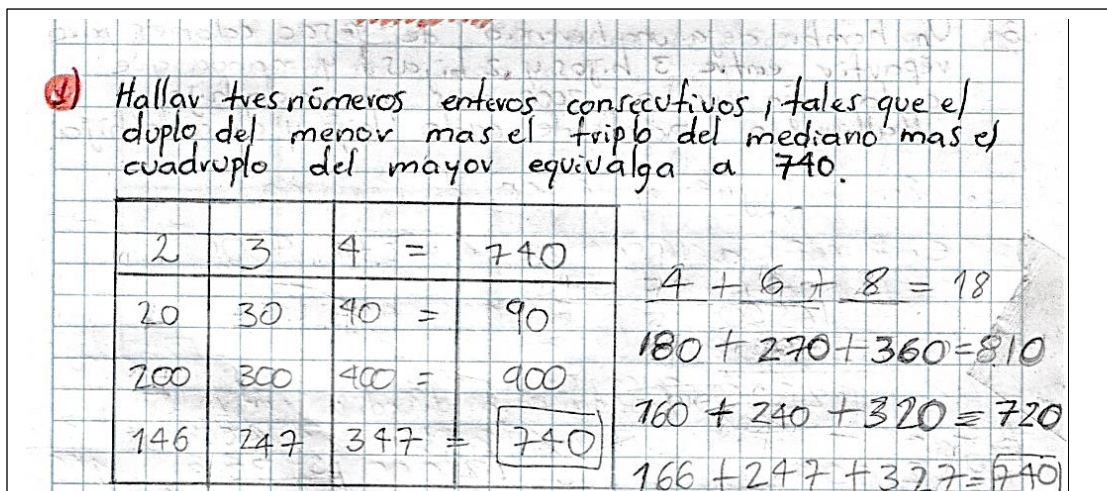 1) Hallar tres números enteros consecutivos, tales que el
duplo del menor mas el triplo del mediano mas el
cuadruplo del mayor equivalga a 740.
2 3 4 = 740
20 30 40 = 90
200 300 400 = 900
146 247 347 = 740
4 + 6 + 8 = 18
180 + 270 + 360 = 810
160 + 240 + 320 = 720
166 + 247 + 327 = 740